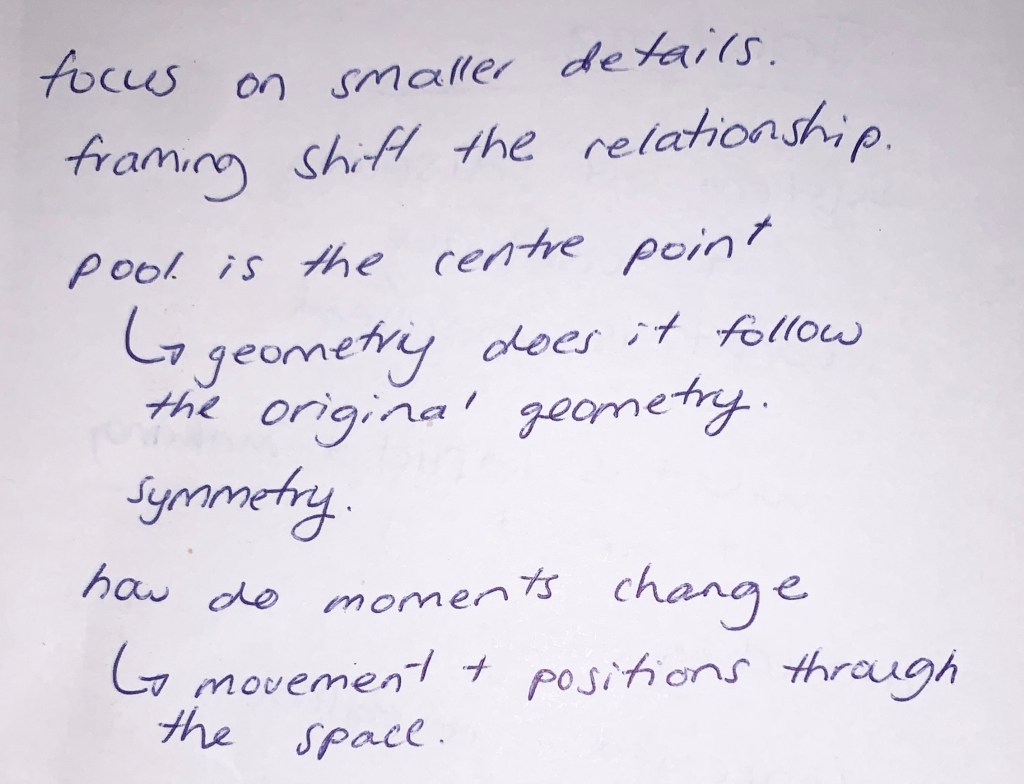 focus on smaller details.
framing shift the relationship.
pool is the centre point
↳ geometry does it follow
the original geometry.
symmetry.
how do moments change
↳ movement + positions through
the space.